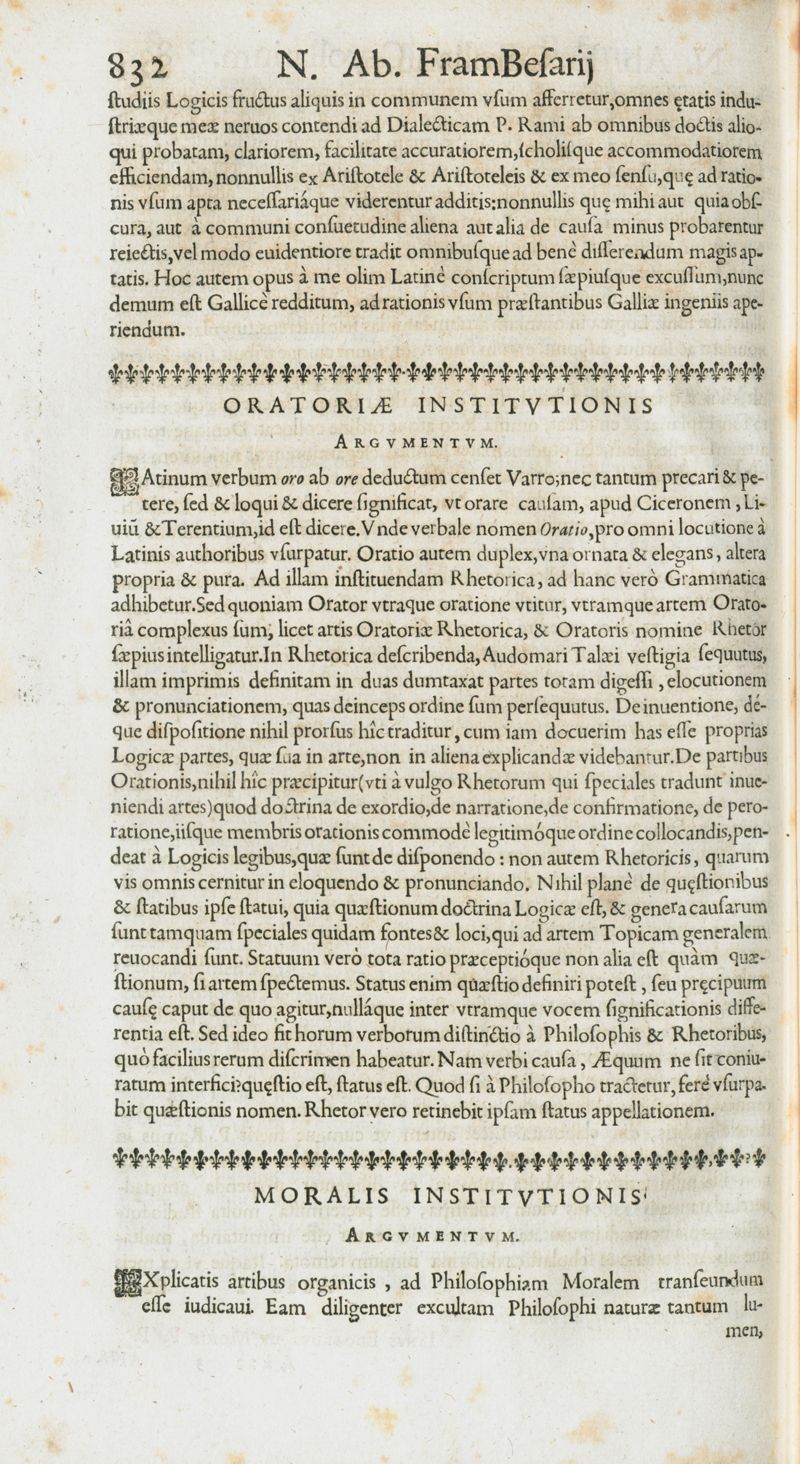 832 N. Ab. FramBeſarij
ſtudiis Logicis fructus aliquis in communem vſum afferretur,omnes ętatis indu-
ſtriæque meæ neruos contendi ad Dialecticam P. Rami ab omnibus doctis alio-
qui probatam, clariorem, facilitate accuratiorem,ſcholiſque accommodatiorem
efficiendam, nonnullis ex Ariſtotele & Ariſtoteleis & ex meo ſenſu,quę ad ratio-
nis vſum apta neceſſariáque viderentur additis:nonnullis quę mihi aut quia obſ-
cura, aut à communi conſuetudine aliena aut alia de cauſa minus probarentur
reiectis,vel modo euidentiore tradit omnibuſque ad benè diſſerendum magis ap-
tatis. Hoc autem opus à me olim Latinè conſcriptum ſæpiuſque excuſſum,nunc
demum eſt Gallicè redditum, ad rationis vſum præſtantibus Galliæ ingeniis ape-
riendum.
ORATORIÆ INSTITVTIONIS
ARGVMENTVM.
LAtinum verbum oro ab ore deductum cenſet Varro;nec tantum precari & pe-
tere, ſed & loqui & dicere ſignificat, vt orare cauſam, apud Ciceronem , Li-
uiū & Terentium,id eſt dicere.Vnde verbale nomen Oratio,pro omni locutione à
Latinis authoribus vſurpatur. Oratio autem duplex,vna ornata & elegans, altera
propria & pura. Ad illam inſtituendam Rhetorica, ad hanc verò Grammatica
adhibetur.Sed quoniam Orator vtraque oratione vtitur, vtramque artem Orato-
riâ complexus ſum, licet artis Oratoriæ Rhetorica, & Oratoris nomine Rhetor
ſæpius intelligatur.In Rhetorica deſcribenda, Audomari Talæi veſtigia ſequutus,
illam imprimis definitam in duas dumtaxat partes totam digeſſi , elocutionem
& pronunciationem, quas deinceps ordine ſum perſequutus. De inuentione, dé-
que diſpoſitione nihil prorſus hîc traditur, cum iam docuerim has eſſe proprias
Logicæ partes, quæ ſua in arte,non in aliena explicandæ videbantur.De partibus
Orationis,nihil hîc præcipitur(vti à vulgo Rhetorum qui ſpeciales tradunt inue-
niendi artes)quod doctrina de exordio,de narratione,de confirmatione, de pero-
ratione,iiſque membris orationis commodè legitimóque ordine collocandis,pen-
deat à Logicis legibus,quæ ſunt de diſponendo : non autem Rhetoricis, quarum
vis omnis cernitur in eloquendo & pronunciando. Nihil planè de quęſtionibus
& ſtatibus ipſe ſtatui, quia quæſtionum doctrina Logicæ eſt, & genera cauſarum
ſunt tamquam ſpeciales quidam fontes & loci,qui ad artem Topicam generalem
reuocandi ſunt. Statuum verò tota ratio præceptióque non alia eſt quàm quæ-
ſtionum, ſi artem ſpectemus. Status enim quæſtio definiri poteſt , ſeu pręcipuum
cauſę caput de quo agitur,nulláque inter vtramque vocem ſignificationis diffe-
rentia eſt. Sed ideo fit horum verborum diſtinctio à Philoſophis & Rhetoribus,
quò facilius rerum diſcrimen habeatur. Nam verbi cauſa, Æquum ne ſit coniu-
ratum interfici?quęſtio eſt, ſtatus eſt. Quod ſi à Philoſopho tractetur, ferè vſurpa-
bit quæſtionis nomen. Rhetor vero retinebit ipſam ſtatus appellationem.
MORALIS INSTITVTIONIS
ARGVMENTVM.
EXplicatis artibus organicis , ad Philoſophiam Moralem tranſeundum
eſſe iudicaui. Eam diligenter excultam Philoſophi naturæ tantum lu-
men,